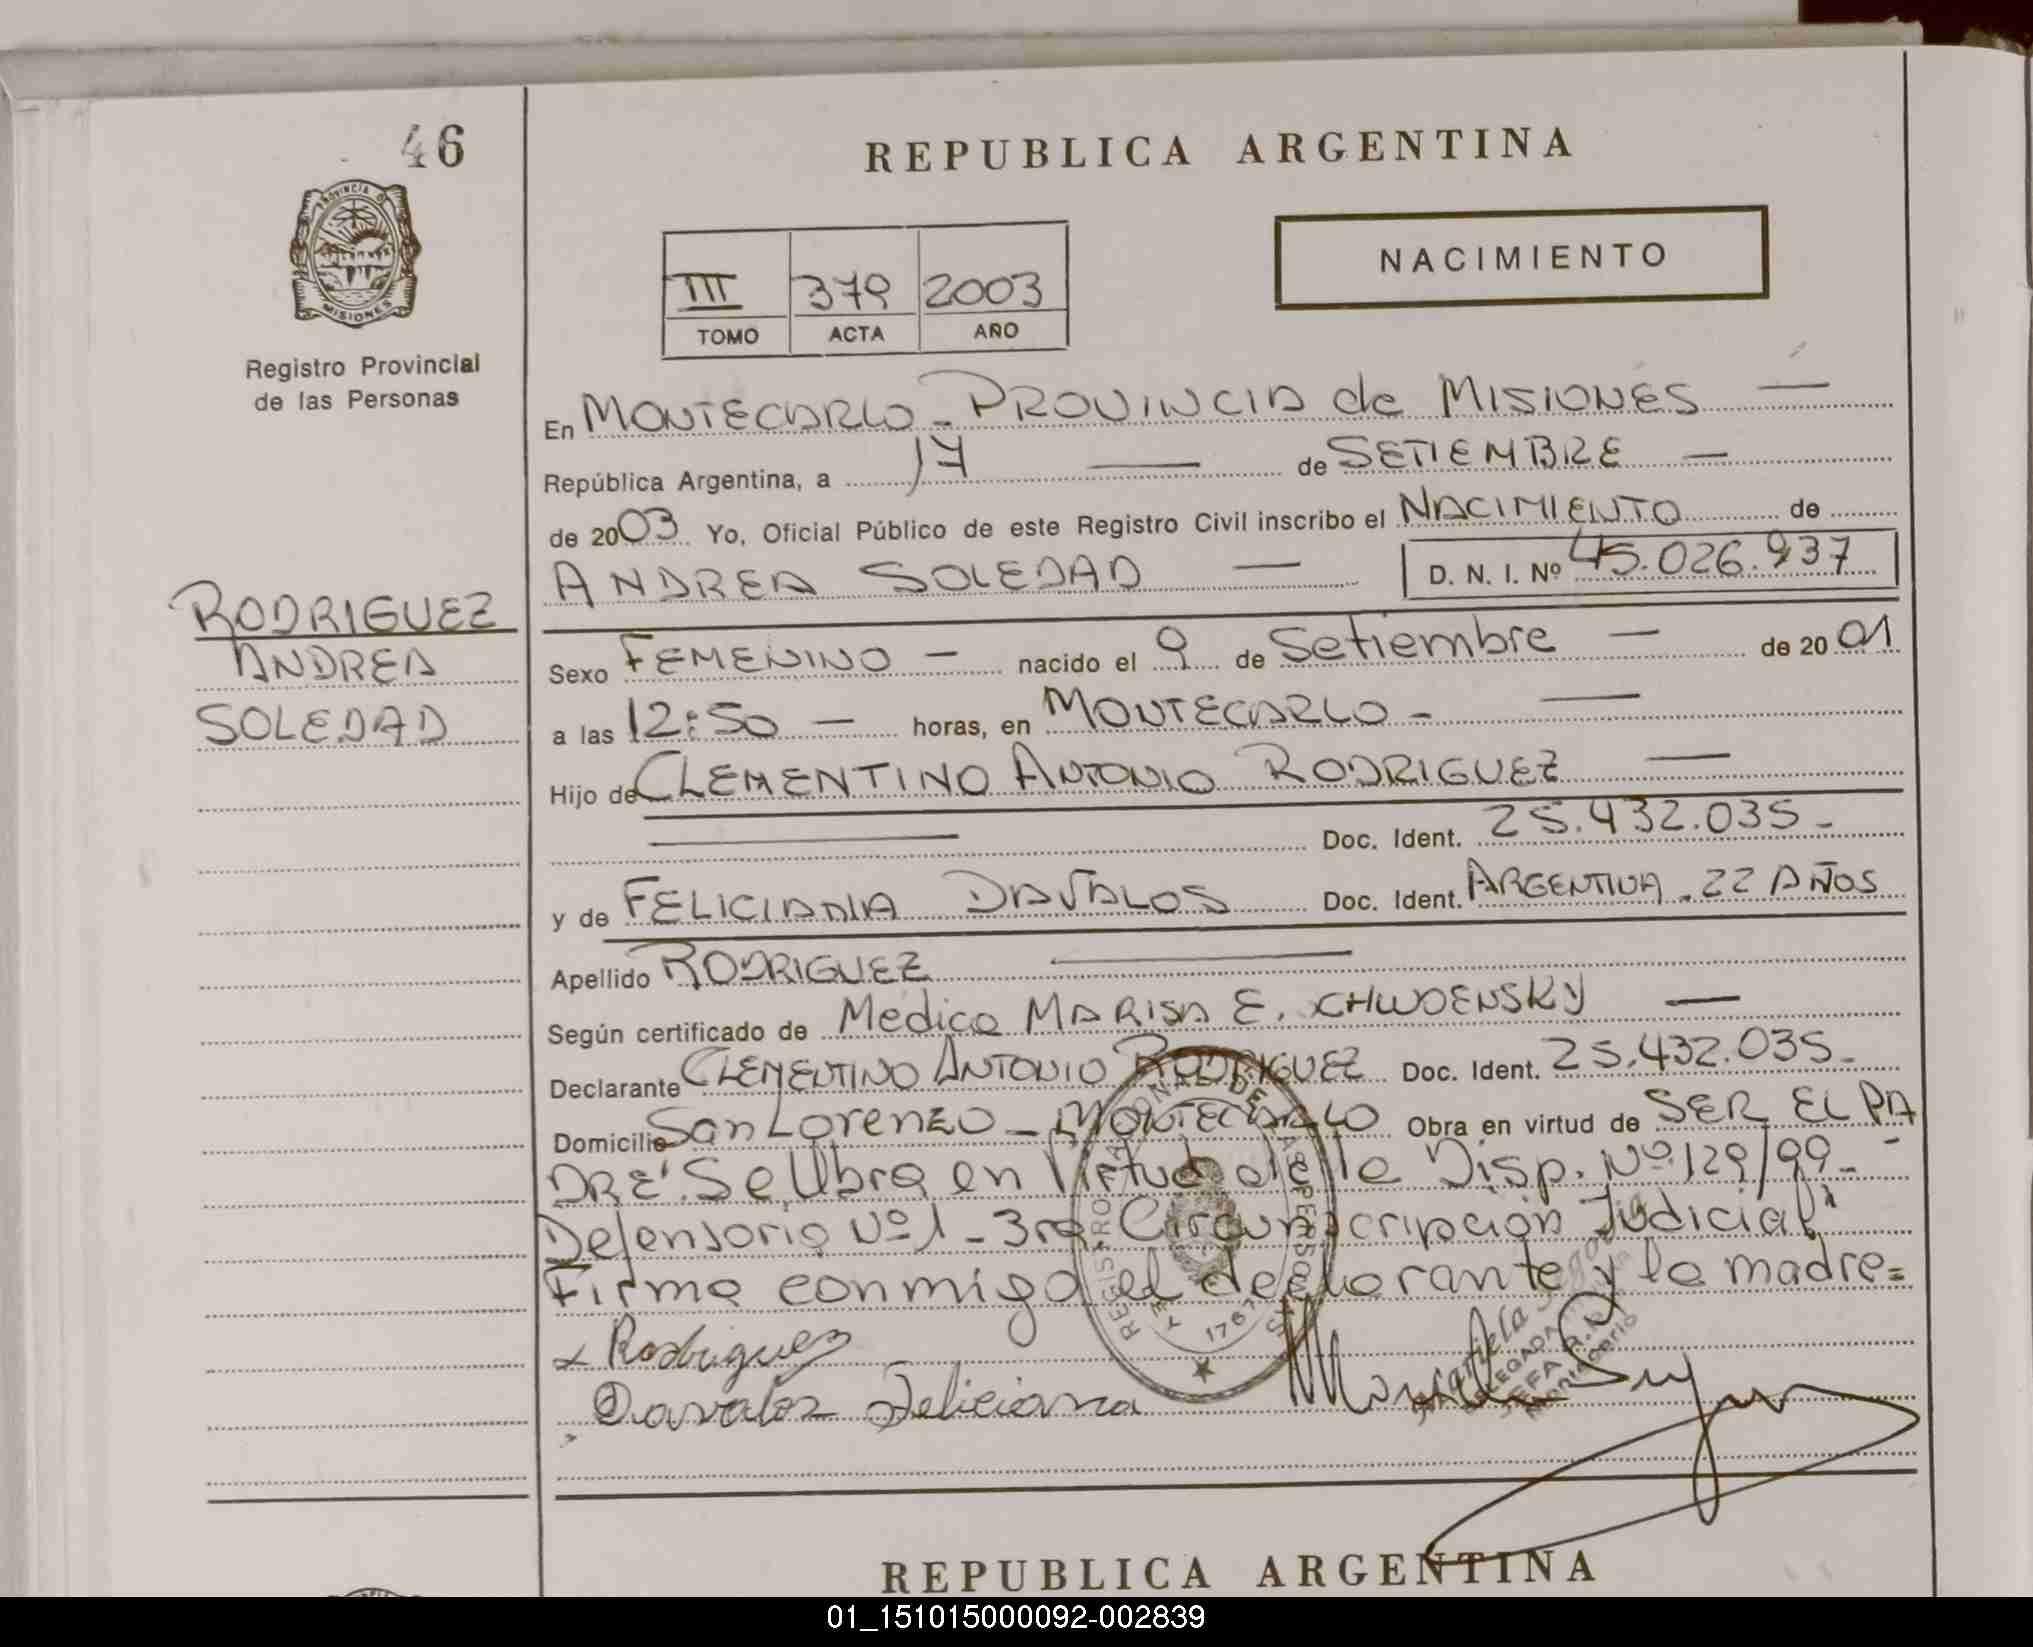 46
REPUBLICA ARGENTINA
PROVINCIA D
MISIONES
Registro Provincial
de las Personas
III 379 2003
TOMO ACTA AÑO
NACIMIENTO
En MONTECARLO - PROVINCIA de MISIONES —
República Argentina, a 17 — de SETIEMBRE —
de 2003 Yo, Oficial Público de este Registro Civil inscribo el NACIMIENTO de
ANDREA SOLEDAD — D. N. I. Nº 45.026.937
RODRIGUEZ
ANDREA
SOLEDAD
Sexo FEMENINO — nacido el 9 de Setiembre — de 2001
a las 12:50 — horas, en MONTECARLO - —
Hijo de CLEMENTINO ANTONIO RODRIGUEZ —
— Doc. Ident. 25.432.035 -
y de FELICIANA DAVALOS Doc. Ident. ARGENTINA . 22 AÑOS
Apellido RODRIGUEZ —
Según certificado de Medica MARISA E. CHWOENSKY —
Declarante CLEMENTINO ANTONIO RODRIGUEZ Doc. Ident. 25.432.035 -
Domicilio San Lorenzo - MONTECARLO Obra en virtud de SER EL PA
DRE. Se Obra en Virtud de la Disp. Nº 129/99 - -
Defensoria Nº 1 - 3ra. Circunscripcion Judicial
Firma conmigo el declarante y la madre =
x Rodriguez
Davalos Feliciana
REPUBLICA ARGENTINA
01_151015000092-002839